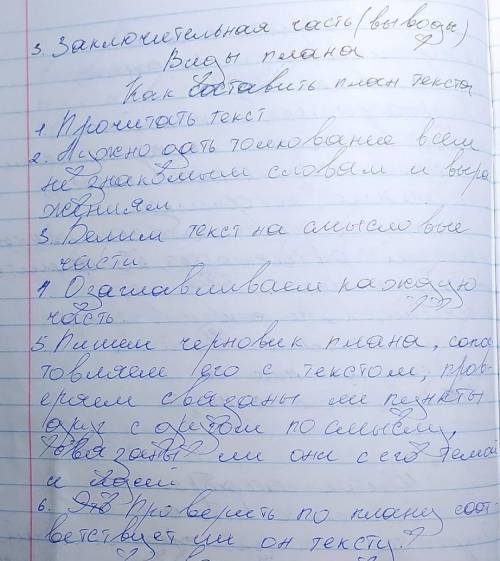 3. Заключительная часть (выводы)
Виды плана
Как составить план текста
1. Прочитать текст
2. Нужно дать толкование всем
не знакомым словам и выра
жениям.
3. Делим текст на смысловые
части.
4. Озаглавливаем каждую
часть.
5. Пишем черновик плана, сопо
товляем его с текстом, пров-
еряем связаны ли пункты
друг с другом по смыслу,
связаны ли они с его темой
и идеей
6. Это Проверить по плану соот
ветствует ли он тексту.